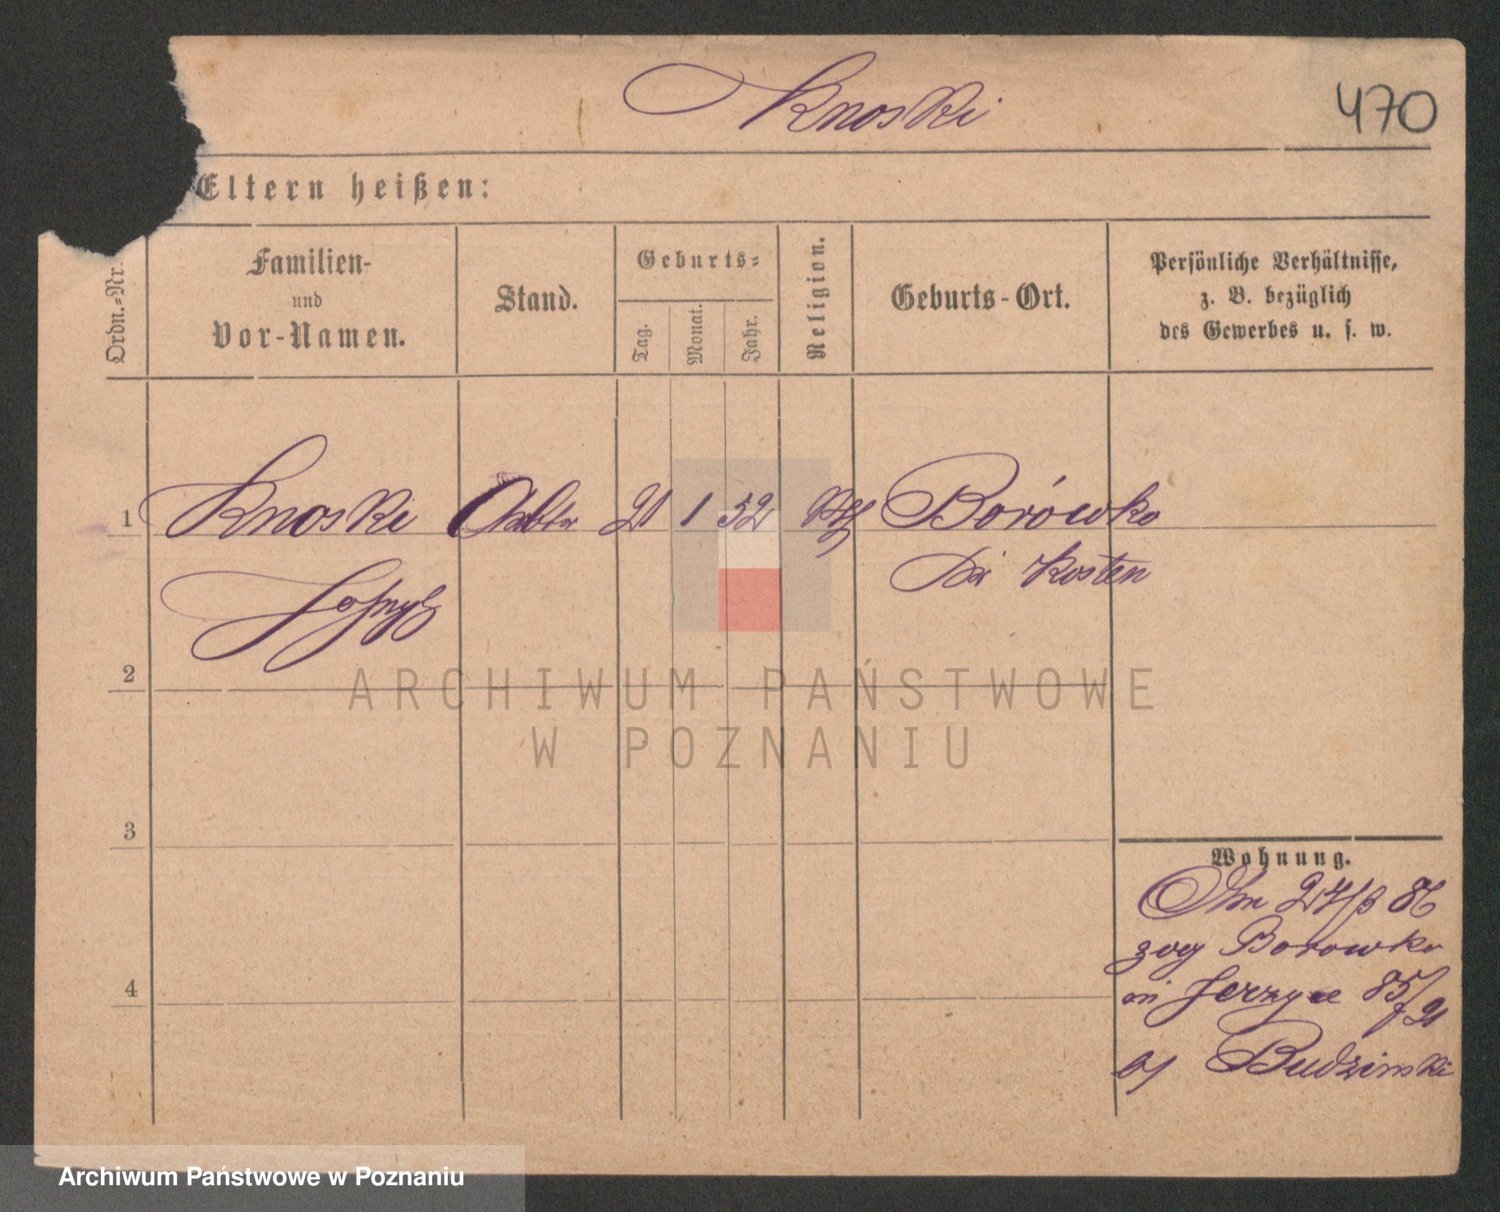 Knoski
470
Eltern heißen:
Ordn.-Nr.
Familien-
und
Vor-Namen.
Stand.
Geburts-
Tag.
Monat.
Jahr.
Religion.
Geburts-Ort.
Persönliche Verhältnisse,
z. B. bezüglich
des Gewerbes u. s. w.
1 Knoski 21 1 52 Borówko
Kosten
2
ARCHIWUM PAŃSTWOWE
W POZNANIU
3
Wohnung.
86
zog Borowko
Jerzyce 85/
4
Budzinski
Archiwum Państwowe w Poznaniu